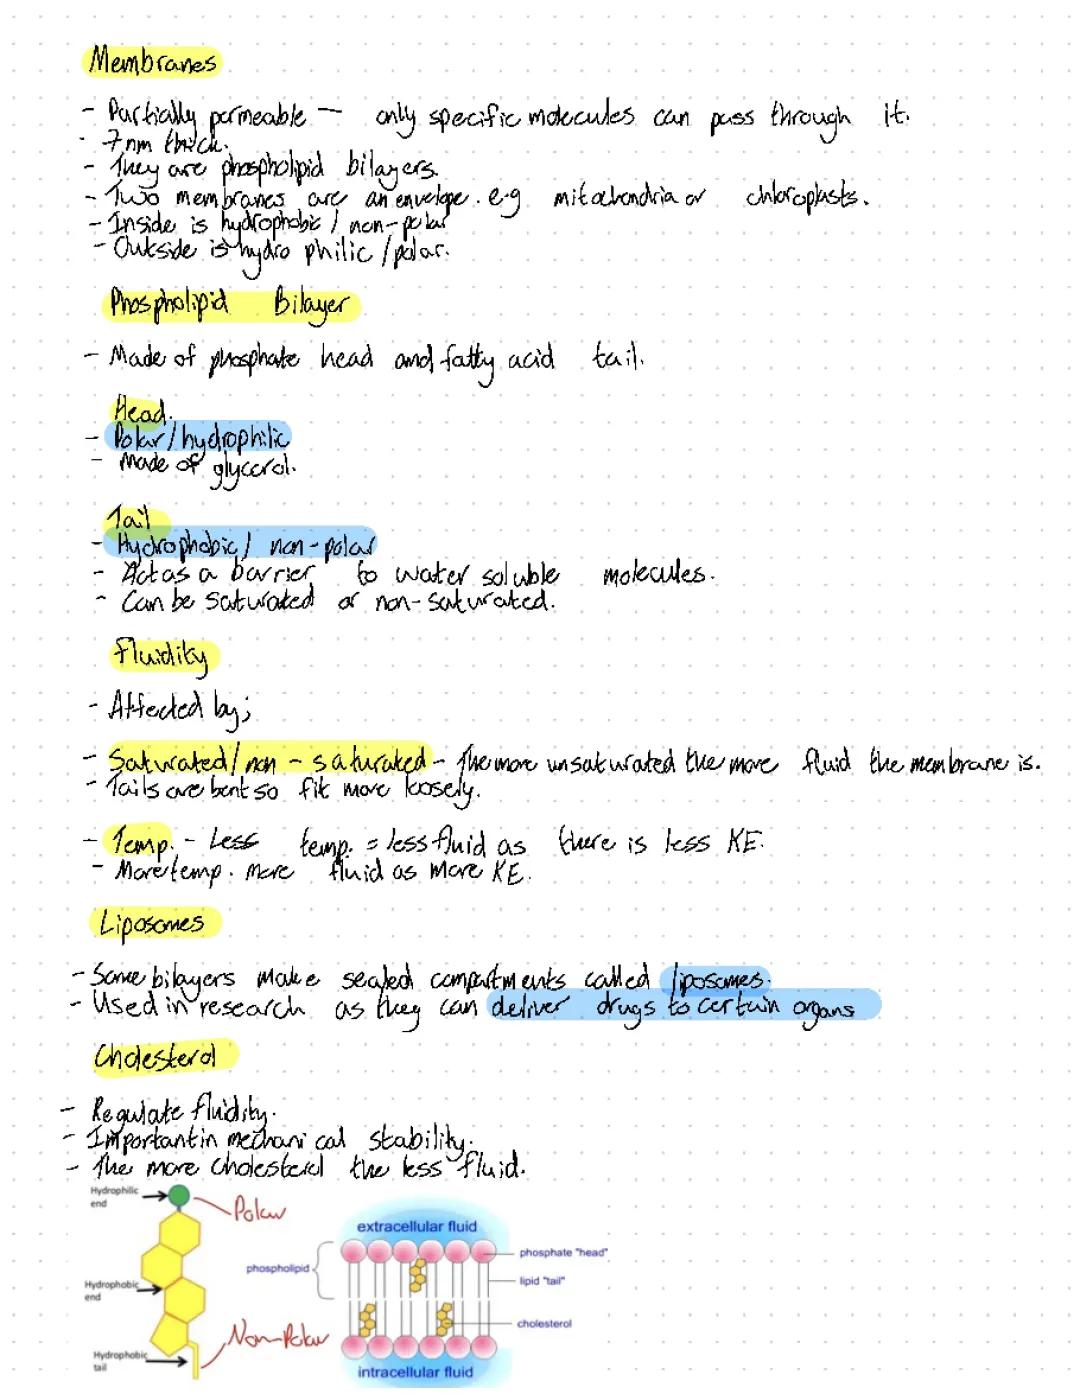 Membranes
- Partially permeable — only specific molecules can pass through it.
- 7nm thick.
- They are phospholipid bilayers.
- Two membranes are an envelope. e.g mitochondria or chloroplasts.
- Inside is hydrophobic / non-polar
- Outside is hydro philic / polar.
Phospholipid Bilayer
- Made of phosphate head and fatty acid tail.
Head.
- Polar / hydrophilic
- Made of glycerol.
Tail
- Hydrophobic / non-polar
- Act as a barrier to water soluble molecules.
- Can be saturated or non-saturated.
Fluidity
- Affected by;
- Saturated / non - saturated - The more unsaturated the more fluid the membrane is.
- Tails are bent so fit more loosely.
- Temp. - Less temp. = less fluid as there is less KE.
- More temp. more fluid as more KE.
Liposomes
- Some bilayers make sealed compartments called liposomes.
- Used in research as they can deliver drugs to certain organs
Cholesterol
- Regulate fluidity.
- Important in mechanical stability.
- The more cholesterol the less fluid.
Hydrophilic
end
Polar
Hydrophobic
end
Non-Polar
Hydrophobic
tail
extracellular fluid
phospholipid
phosphate "head"
lipid "tail"
cholesterol
intracellular fluid